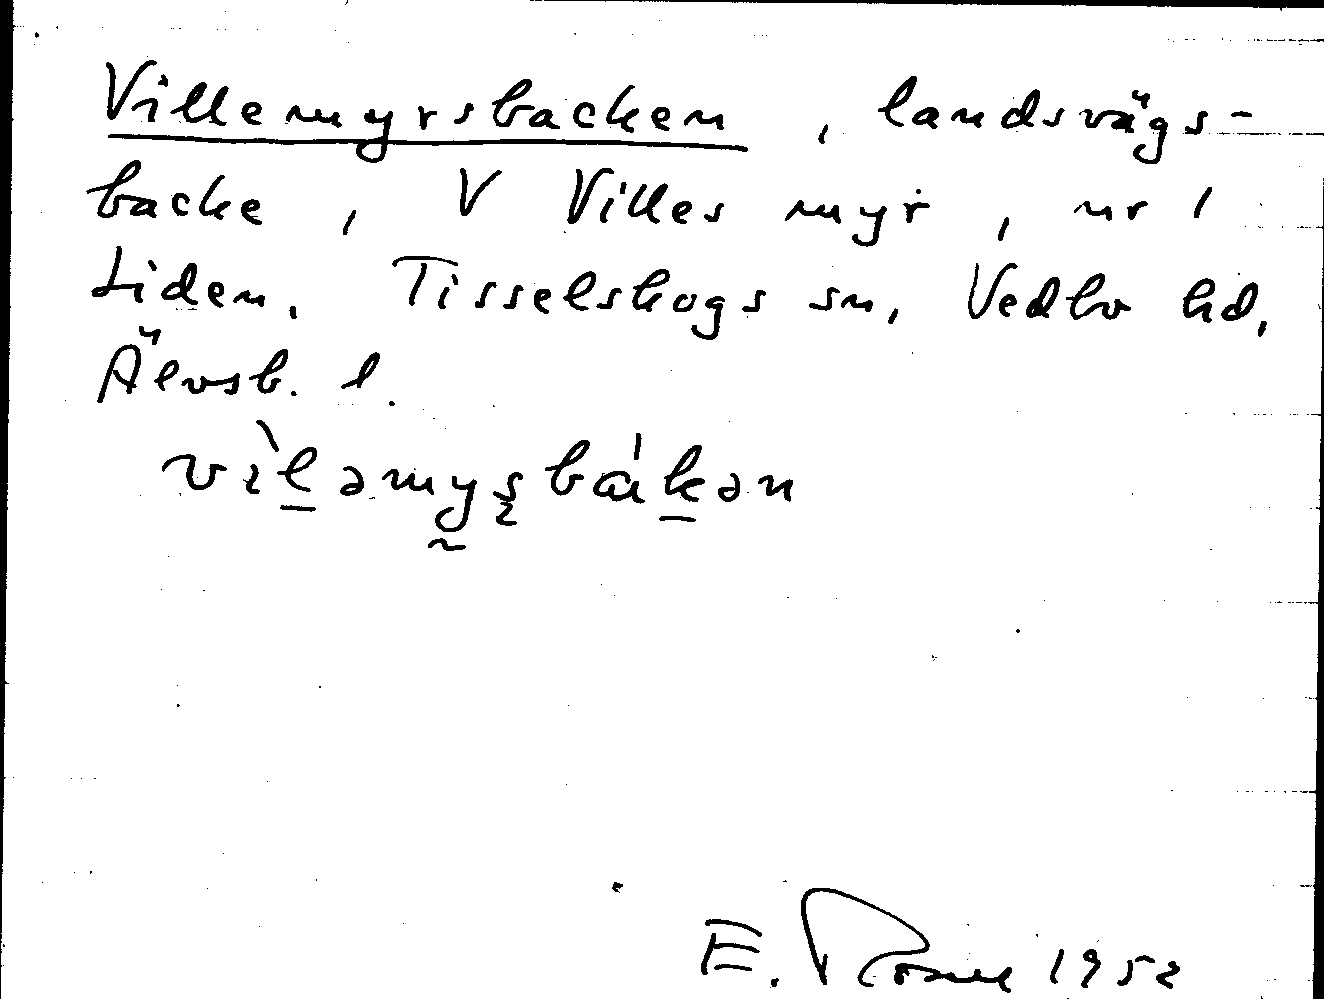 Villemyrsbacken, landsvägs-
backe, V Villes myr, nr 1
Liden, Tisselskogs sn, Vedbo hd,
Älvsb. l.
vìləmyʂbákən
E. 1952